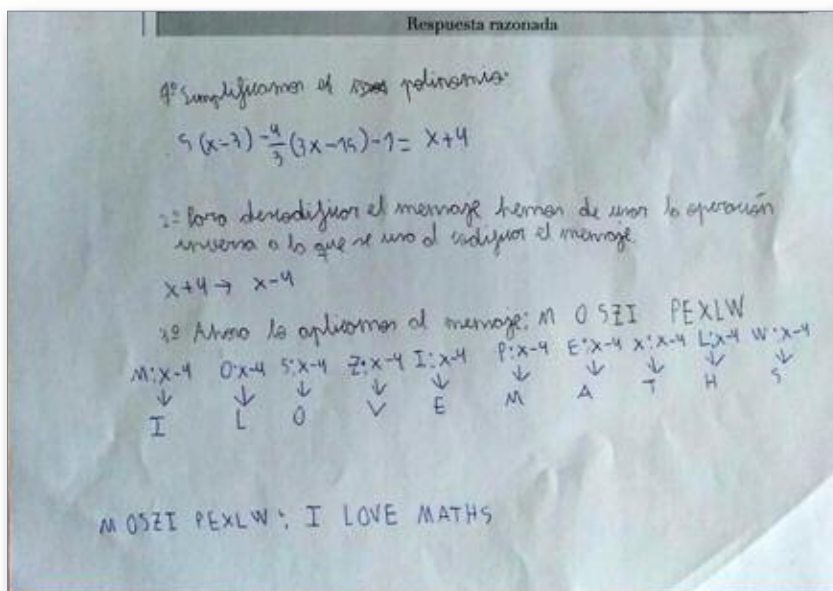 Respuesta razonada
1º Simplificamos el polinomio:
5(x-3) -4/3 (3x-15)-1= x+4
2º Para descodificar el mensaje hemos de usar la operación
inversa a la que se usa al codificar el mensaje.
x+4 → x-4
3º Ahora lo aplicamos al mensaje: M OSZI PEXLW
M:x-4 O:x-4 S:x-4 Z:x-4 I:x-4 P:x-4 E:x-4 X:x-4 L:x-4 W:x-4
↓ ↓ ↓ ↓ ↓ ↓ ↓ ↓ ↓ ↓
I L O V E M A T H S
M OSZI PEXLW: I LOVE MATHS